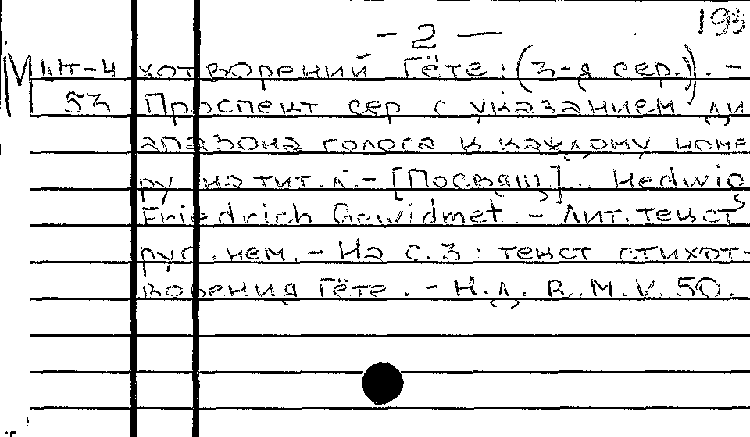 - 2 — 193
М Шт-4 хотворений Гёте: (3-я сер.). -
53 Проспект сер с указанием ди
апазона голоса к каждому номе
ру на тит. л. - [Посвящ]. Hedwig
Friedrich Gewidmet. - Лит. текст
рус. нем. - На с. 3: текст стихот-
ворения Гёте. - Н. д. R. M. V. 50.